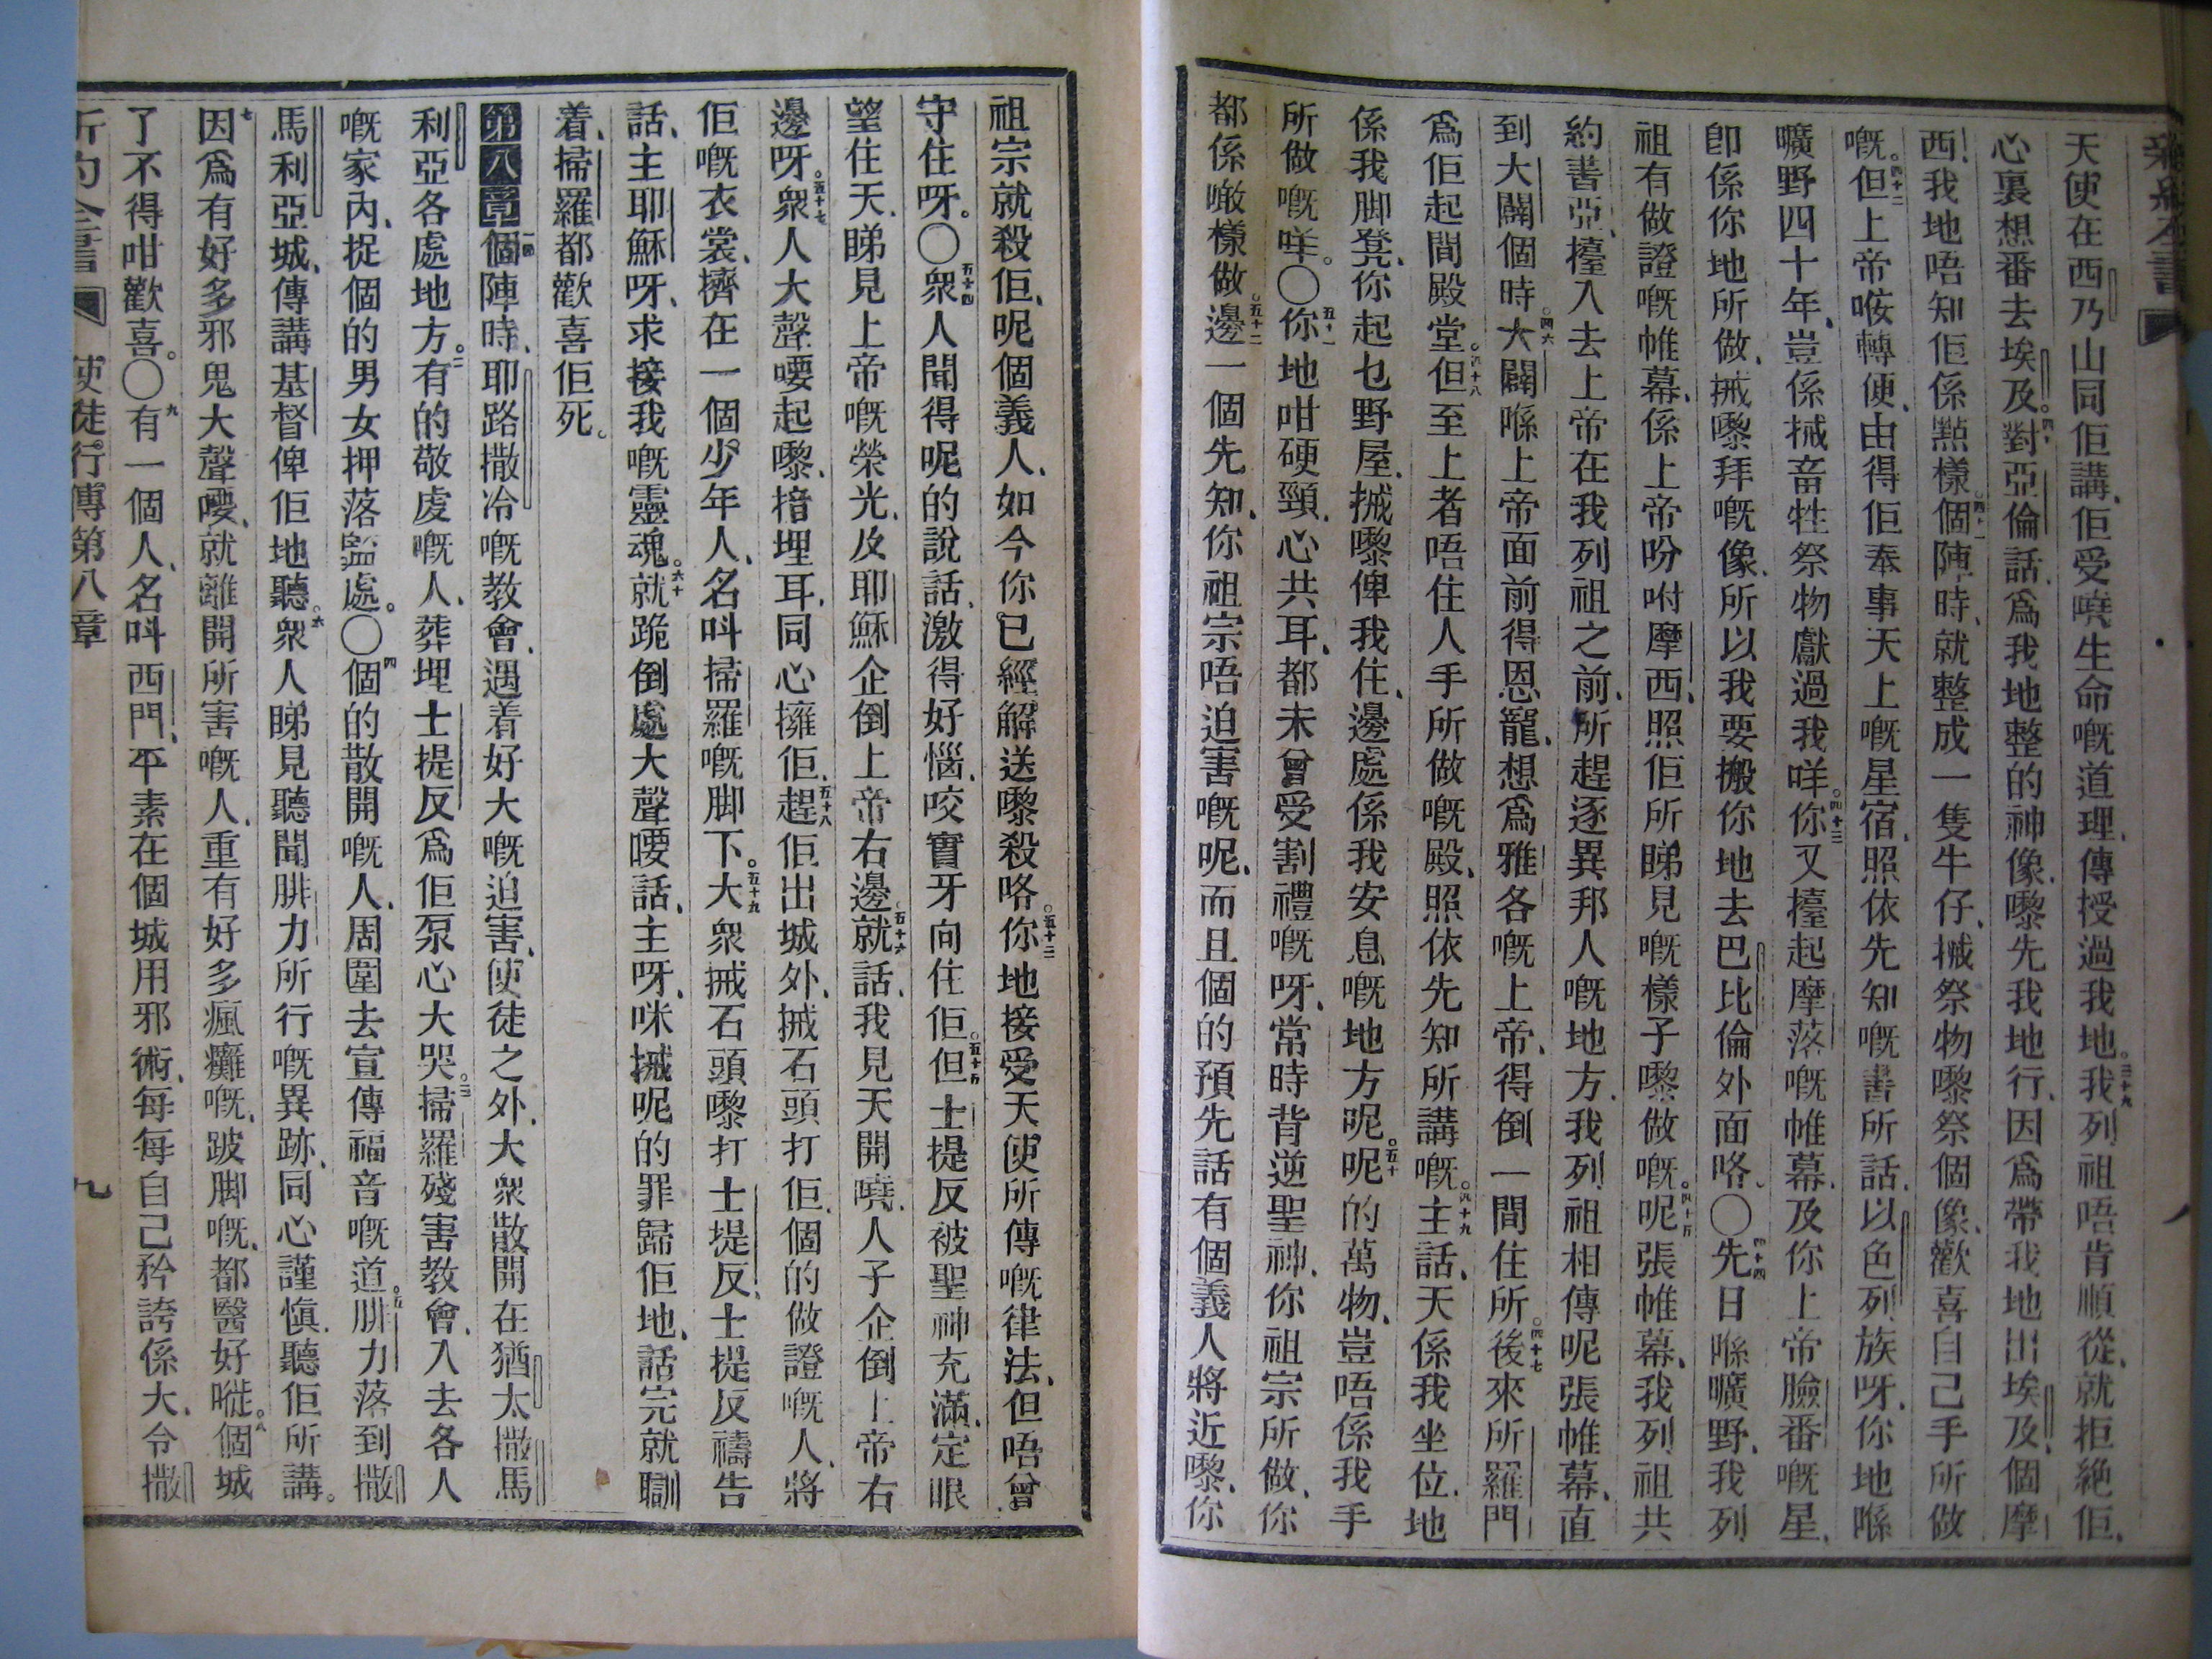 新約全書
天使在西乃山同佢講、佢受嘵生命嘅道理、傳授過我地。三十九我列祖唔肯順從、就拒絕佢、
心裏想番去埃及。四十對亞倫話、爲我地整的神像、嚟先我地行、因爲帶我地出埃及、個摩
西、我地唔知佢係點樣。四十一個陣時、就整成一隻牛仔、搣祭物嚟祭個像、歡喜自己手所做
嘅。四十二但上帝㖭轉便、由得佢奉事天上嘅星宿、照依先知嘅書所話、以色列族呀、你地喺
曠野四十年、豈係搣畜牲祭物獻過我咩。四十三你又擡起摩落嘅帷幕、及你上帝臉番嘅星、
卽係你地所做、搣嚟拜嘅像、所以我要搬你地去巴比倫外面咯。〇四十四先日喺曠野、我列
祖有做證嘅帷幕、係上帝吩咐摩西、照佢所睇見嘅樣子嚟做嘅。四十五呢張帷幕、我列祖共
約書亞、擡入去上帝在我列祖之前、所趕逐異邦人嘅地方、我列祖相傳呢張帷幕、直
到大闢個時。四六大闢喺上帝面前得恩寵、想爲雅各嘅上帝、得倒一間住所。四十七後來所羅門
爲佢起間殿堂。四十八但至上者唔住人手所做嘅殿、照依先知所講嘅。四十九主話、天係我坐位、地
係我脚凳、你起乜野屋、搣嚟俾我住、邊處係我安息嘅地方呢。五十呢的萬物、豈唔係我手
所做嘅咩。〇五十一你地咁硬頸、心共耳、都未曾受割禮嘅呀、常時背逆聖神、你祖宗所做、你
都係噉樣做。五十二邊一個先知、你祖宗唔迫害嘅呢、而且個的預先話有個義人將近嚟、你
祖宗就殺佢、呢個義人、如今你已經解送嚟殺咯。五十三你地接受天使所傳嘅律法、但唔曾
守住呀。〇五十四衆人聞得呢的說話、激得好惱、咬實牙向住佢。五十五但士提反被聖神充滿、定眼
望住天、睇見上帝嘅榮光、及耶穌企倒上帝右邊。五十六就話、我見天開嘵、人子企倒上帝右
邊呀。五十七衆人大聲嘐起嚟、揞埋耳、同心擁佢、五十八趕佢出城外、搣石頭打佢、個的做證嘅人、將
佢嘅衣裳、擠在一個少年人、名呌掃羅嘅脚下。五十九大衆搣石頭嚟打士提反、士提反禱告
話、主耶穌呀、求接我嘅靈魂。六十就跪倒處大聲嘐話、主呀、咪搣呢的罪歸佢地、話完就瞓
着、掃羅都歡喜佢死。
第八章一個陣時、耶路撒冷嘅教會、遇着好大嘅迫害、使徒之外、大衆散開在猶太撒馬
利亞各處地方。二有的敬虔嘅人、葬埋士提反、爲佢泵心大哭。三掃羅殘害教會、入去各人
嘅家內、捉個的男女押落監處。〇四個的散開嘅人、周圍去宣傳福音嘅道。五腓力落到撒
馬利亞城、傳講基督俾佢地聽。六衆人睇見聽聞腓力所行嘅異跡、同心謹慎、聽佢所講。
七因爲有好多邪鬼大聲嘐、就離開所害嘅人、重有好多瘋癱嘅、跛脚嘅、都醫好嘥。八個城
了不得咁歡喜。〇九有一個人、名呌西門、平素在個城用邪術、每每自己矜誇係大、令撒
新約全書 使徒行傳第八章 九